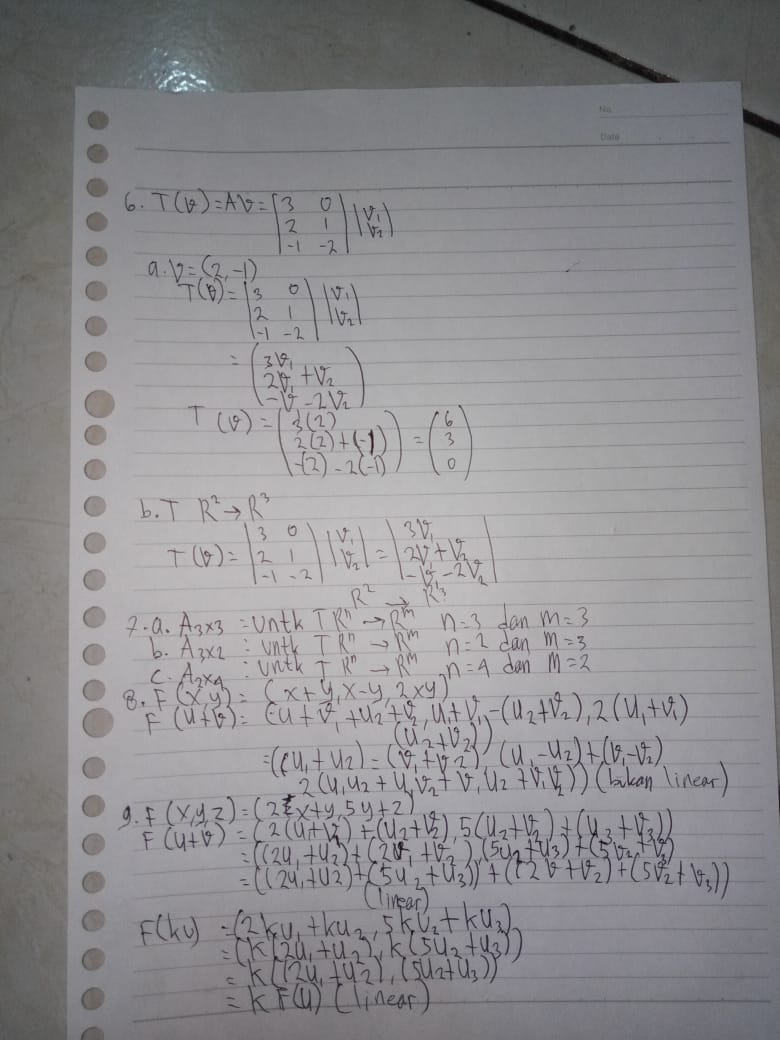 No.
Date
6. T(v) = Av = [3 0 2 1 -1 -2] |v₁ v₂|
a. V = (2, -1)
T(v) = |3 0 2 1 -1 -2| |v₁ v₂|
= (3v₁ 2v₁ + v₂ -v - 2v₂)
T(v) = (3(2) 2(2) + (-1) -(2) - 2(-1)) = (6 3 0)
b. T R² → R³
T(v) = |3 0 2 1 -1 -2| |v₁ v₂| = |3v₁ 2v₁ + v₂ -v₁ - 2v₂|
R² → R³
7. a. A₃ₓ₃ : Untk T Rⁿ → Rᵐ n = 3 dan m = 3
b. A₃ₓ₂ : untk T Rⁿ → Rᵐ n = 2 dan m = 3
c. A₂ₓ₄ : untk T Rⁿ → Rᵐ n = 4 dan m = 2
8. F(x,y) = (x+y, x-y, 2xy)
F(u+v) = (u + v₁ + u₂ + v₂, u₁ + v₁ - (u₂ + v₂), 2(u₁ + v₁)
(u₂ + v₂))
= ((u₁ + u₂) = (v₁ + v₂), (u₁ - u₂) + (v₁ - v₂)
2(u₁u₂ + u₁v₂ + v₁u₂ + v₁v₂)) (bukan linear)
9. F(x,y,z) = (2x+y, 5y+z)
F(u+v) = (2(u+v₁) + (u₂+v₂), 5(u₂+v₂) + (u₃+v₃))
= ((2u₁+u₂) + (2v₁+v₂), (5u₂+u₃) + (5v₂+v₃)
= ((2u₁+u2) + (5u₂+u₃)) + ((2v+v₂) + (5v₂+v₃))
(linear)
F(ku) = (2ku₁ + ku₂, 5ku₂ + ku₃)
= (k(2u₁+u₂), k(5u₂+u₃))
= k((2u₁+u₂), (5u₂+u₃))
= k F(u) (linear)